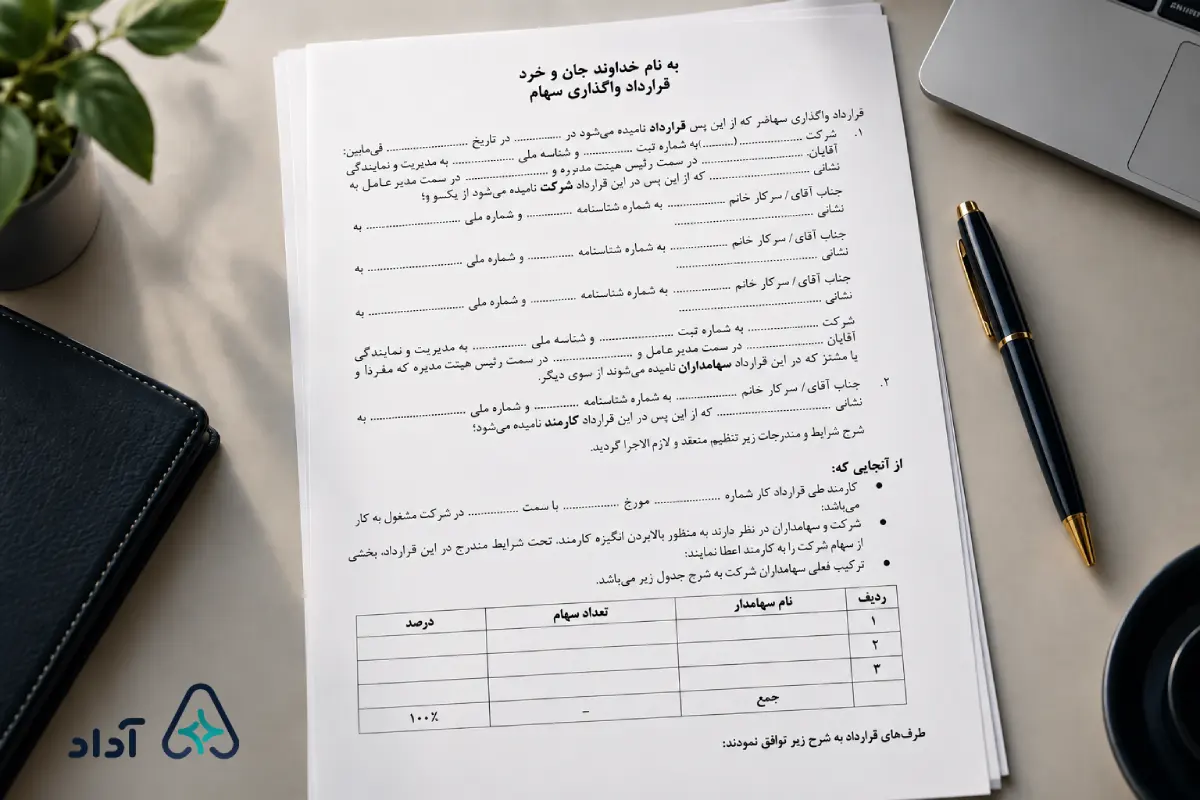 به نام خداوند جان و خرد
قرارداد واگذاری سهام
قرارداد واگذاری سهاضر که از این پس قرارداد نامیده می‌شود در .............. در تاریخ ........................ فی‌مابین:
۱. شرکت ....................(...........)به شماره ثبت ................ و شناسه ملی .................... به مدیریت و نمایندگی
آقایان. .......................... در سمت رئیس هیئت مدیره و .......................... در سمت مدیر عامل به
نشانی .......................... که از این پس در این قرارداد شرکت نامیده می‌شود از یکسو و؛
جناب آقای / سرکار خانم ................ به شماره شناسنامه ............. و شماره ملی ........................ به
نشانی ....................................
جناب آقای / سرکار خانم ................ به شماره شناسنامه ............. و شماره ملی ........................ به
نشانی ....................................
جناب آقای / سرکار خانم ................ به شماره شناسنامه ............. و شماره ملی ........................ به
نشانی ....................................
شرکت .................. به شماره ثبت .................... و شناسه ملی ................ به مدیریت و نمایندگی
آقایان .................... در سمت مدیر عامل و .................... در سمت رئیس هیئت مدیره که مفرذا و
یا مشتز که در این قرارداد سهامداران نامیده می‌شوند از سوی دیگر.
۲. جناب آقای / سرکار خانم ................ به شماره شناسنامه ............. و شماره ملی ........................ به
نشانی .............................. که از این پس در این قرارداد کارمند نامیده می‌شود؛
شرح شرایط و مندرجات زیر تنظیم منعقد و لازم الاجرا گردید.
از آنجایی که:
• کارمند طی قرارداد کار شماره .................. مورخ ................ با سمت .............. در شرکت مشغول به کار
می‌باشد:
• شرکت و سهامداران در نظر دارند به منظور بالابردن انگیزه کارمند، تحت شرایط مندرج در این قرارداد، بخشی
از سهام شرکت را به کارمند اعطا نمایند:
• ترکیب فعلی سهامداران شرکت به شرح جدول زیر می‌باشد.
ردیف نام سهامدار تعداد سهام درصد
۱
۲
۳
جمع – ۱۰۰٪
طرف‌های قرارداد به شرح زیر توافق نمودند:
آداد